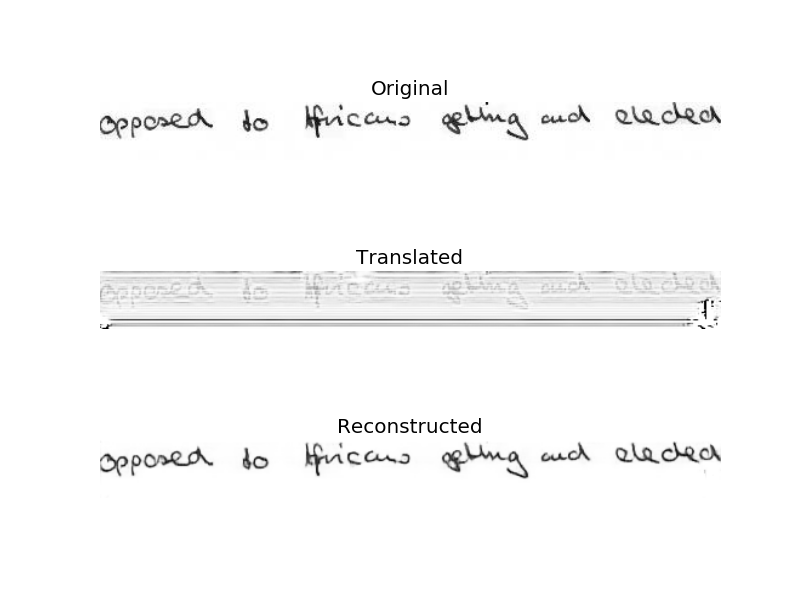 Original
opposed to Africans getting and elected
Translated
opposed to Africans getting and elected
Reconstructed
opposed to Africans getting and elected